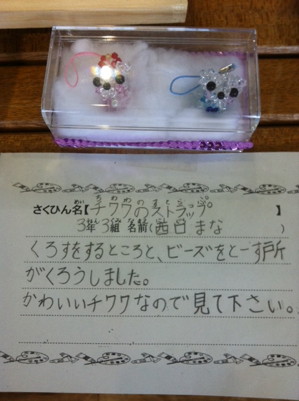 さくひん名【チワワのストラップ】
3年3組 名前(茜日 まな)
くろすをするところと、ビーズをとーす所
がくろうしました。
かわいいチワワなので見て下さい。